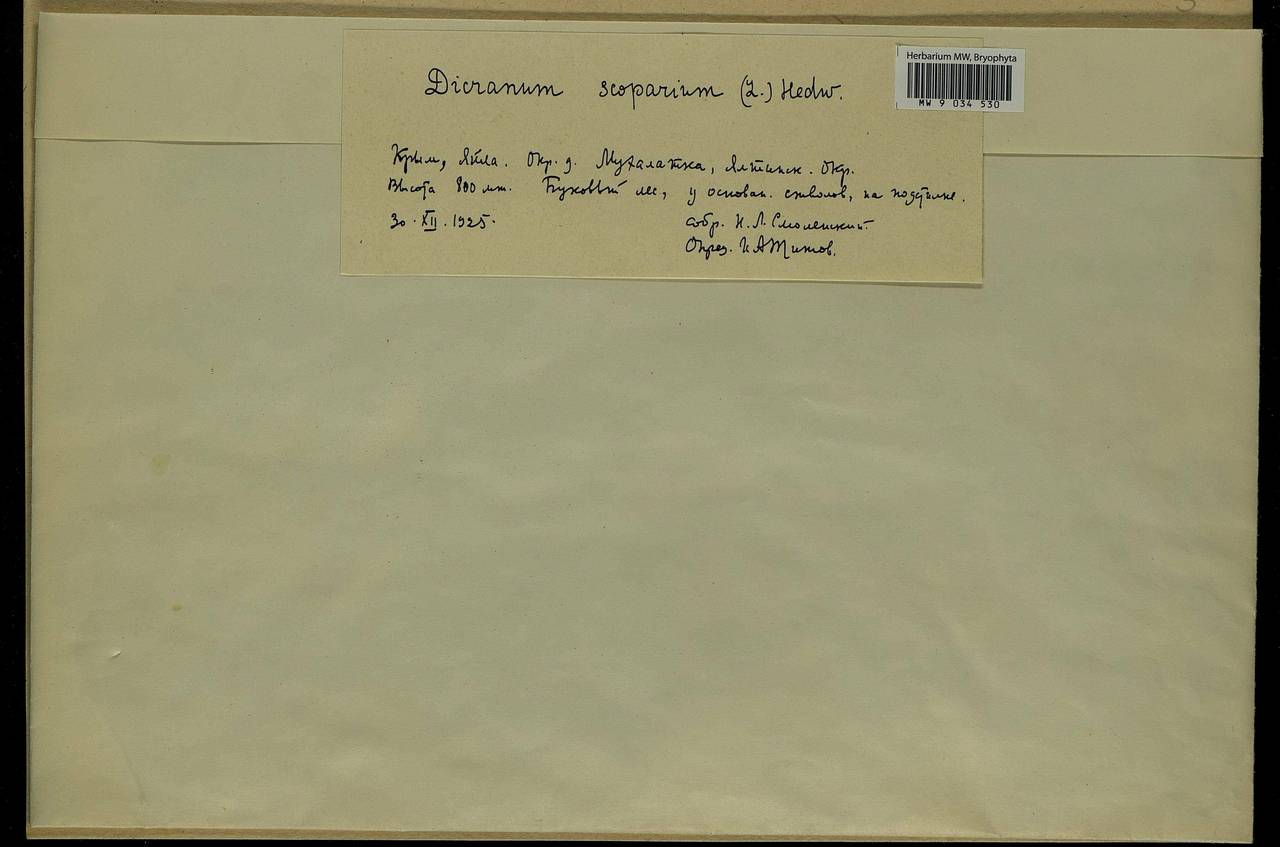 Herbarium MW, Bryophyta
MW 9 034 530
Dicranum scoparium (L.) Hedw.
Крым, Яйла. Окр. д. Мухалатка, Ялтинск. Окр.
Высота 800 мт. Буковый лес, у основан. стволов, на подстилке.
30. XII. 1925.
собр. Н. Л. Смоленский.
Опред. И А Титов.